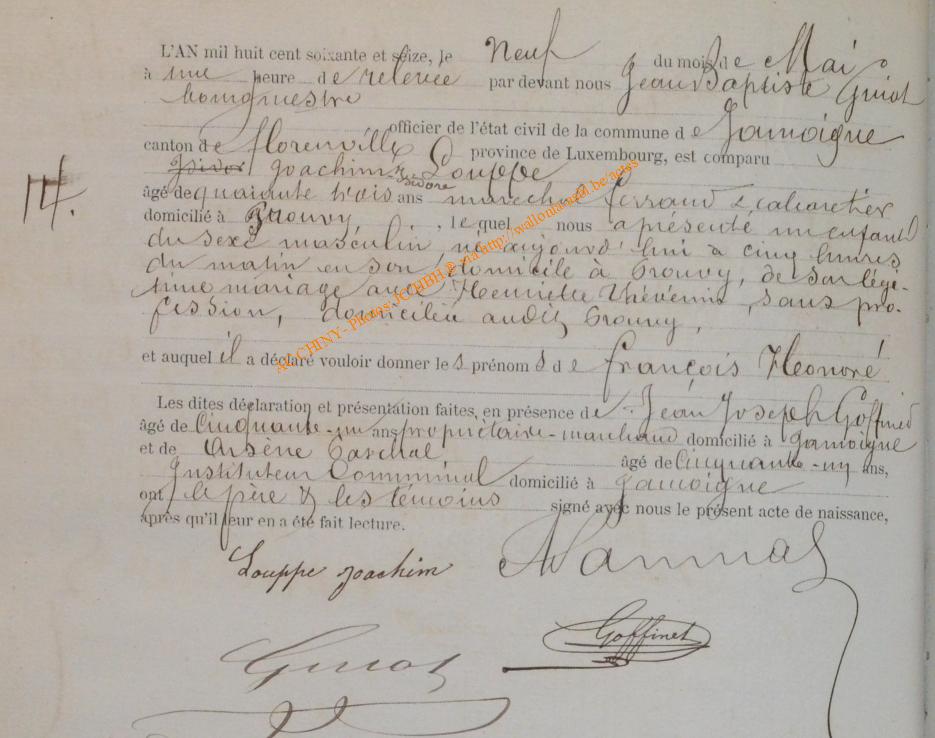 L'AN mil huit cent soixante et seize, le Neuf du mois de Mai
à une heure de relevée par devant nous Jean Baptiste Guiot
bourgmestre
officier de l'état civil de la commune de Jamoigne
canton de Florenville province de Luxembourg, est comparu
Isidor Joachim Isidore Louppe
âgé de quarante trois ans maréchal ferrant & cabaretier
domicilié à Prouvy, lequel nous a présenté un enfant
du sexe masculin, né aujourd'hui à cinq heures
du matin en son domicile à Prouvy, de son légi-
time mariage avec Henriette Thévenin, sans pro-
fession, domiciliée audit Prouvy,
et auquel il a déclaré vouloir donner les prénoms de François Héonoré
Les dites déclaration et présentation faites, en présence de Jean Joseph Goffinet
âgé de Cinquante-un ans propriétaire-marchand domicilié à Jamoigne
et de Arsène âgé de Cinquante-un ans,
Instituteur Communal domicilié à Jamoigne
ont le père & les témoins signé avec nous le présent acte de naissance,
après qu'il leur en a été fait lecture.
14.
Louppe Joachim
Goffinet
Guiot
AACHINY - Photos JCHBH © via http://wallonia.eu.be/actes